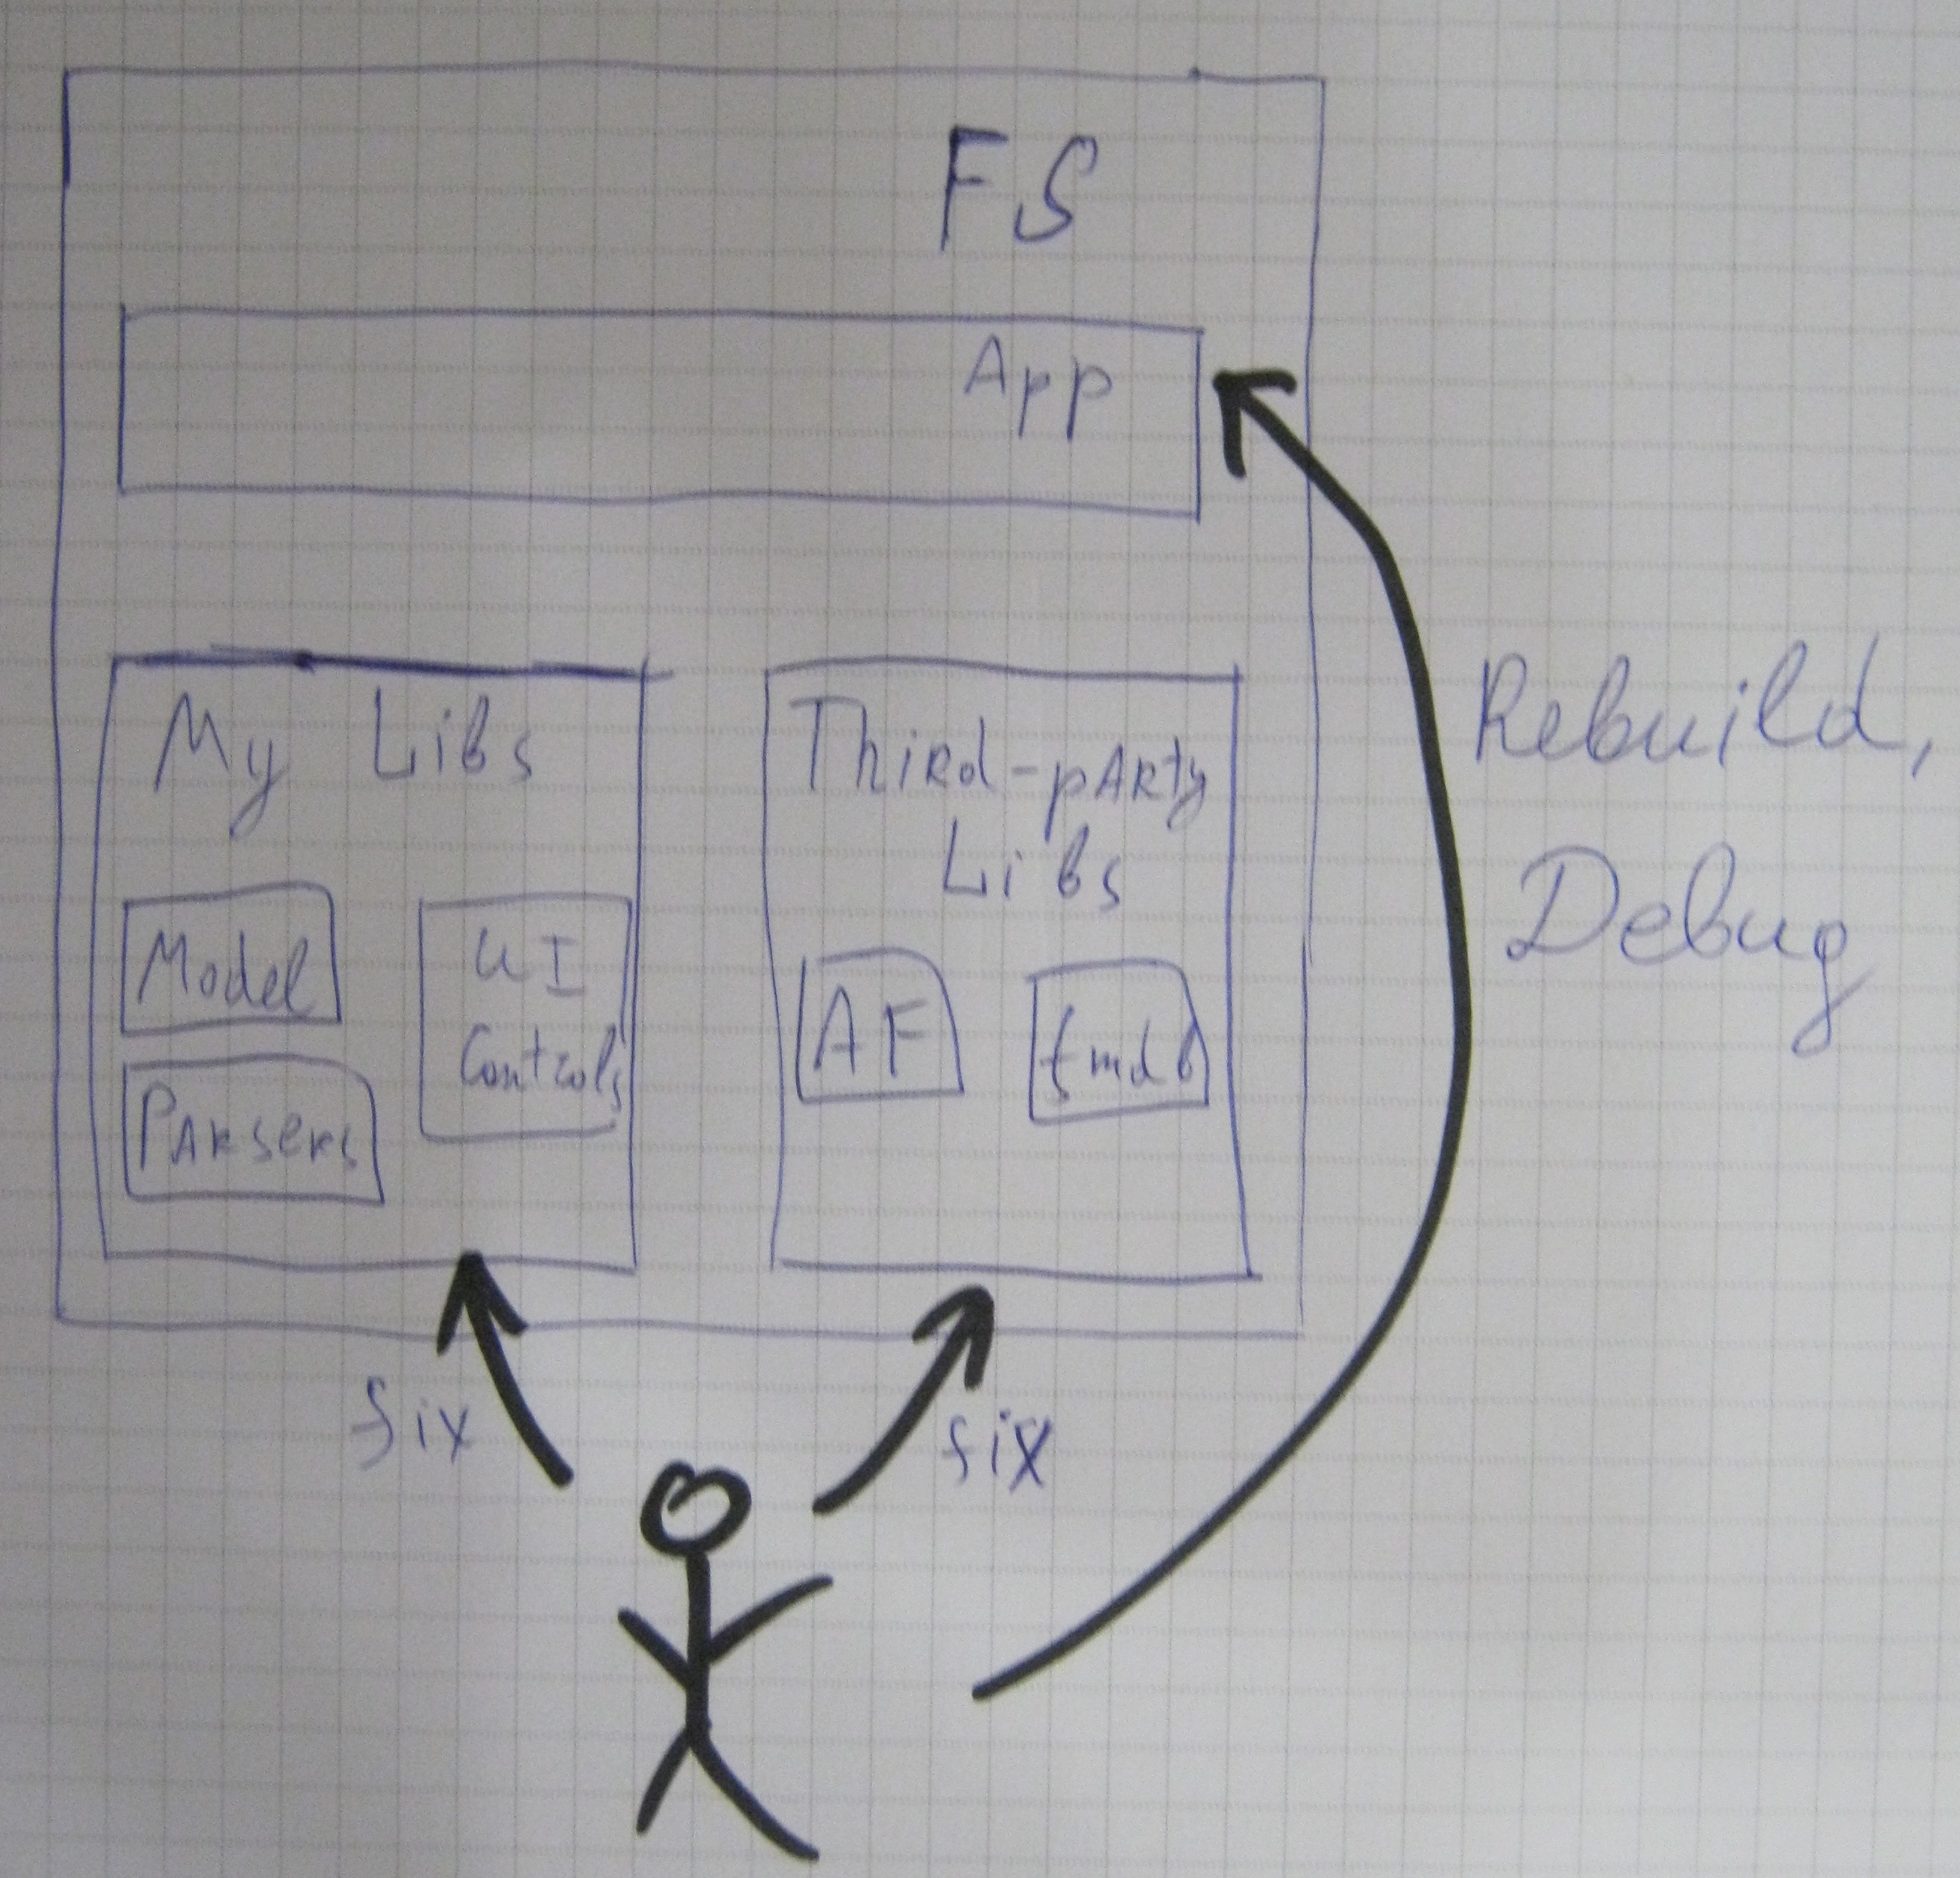 FS
App
My Libs
Model
UI
Controls
Parsers
Third-party
Libs
AF
fmdb
Rebuild,
Debug
fix
fix